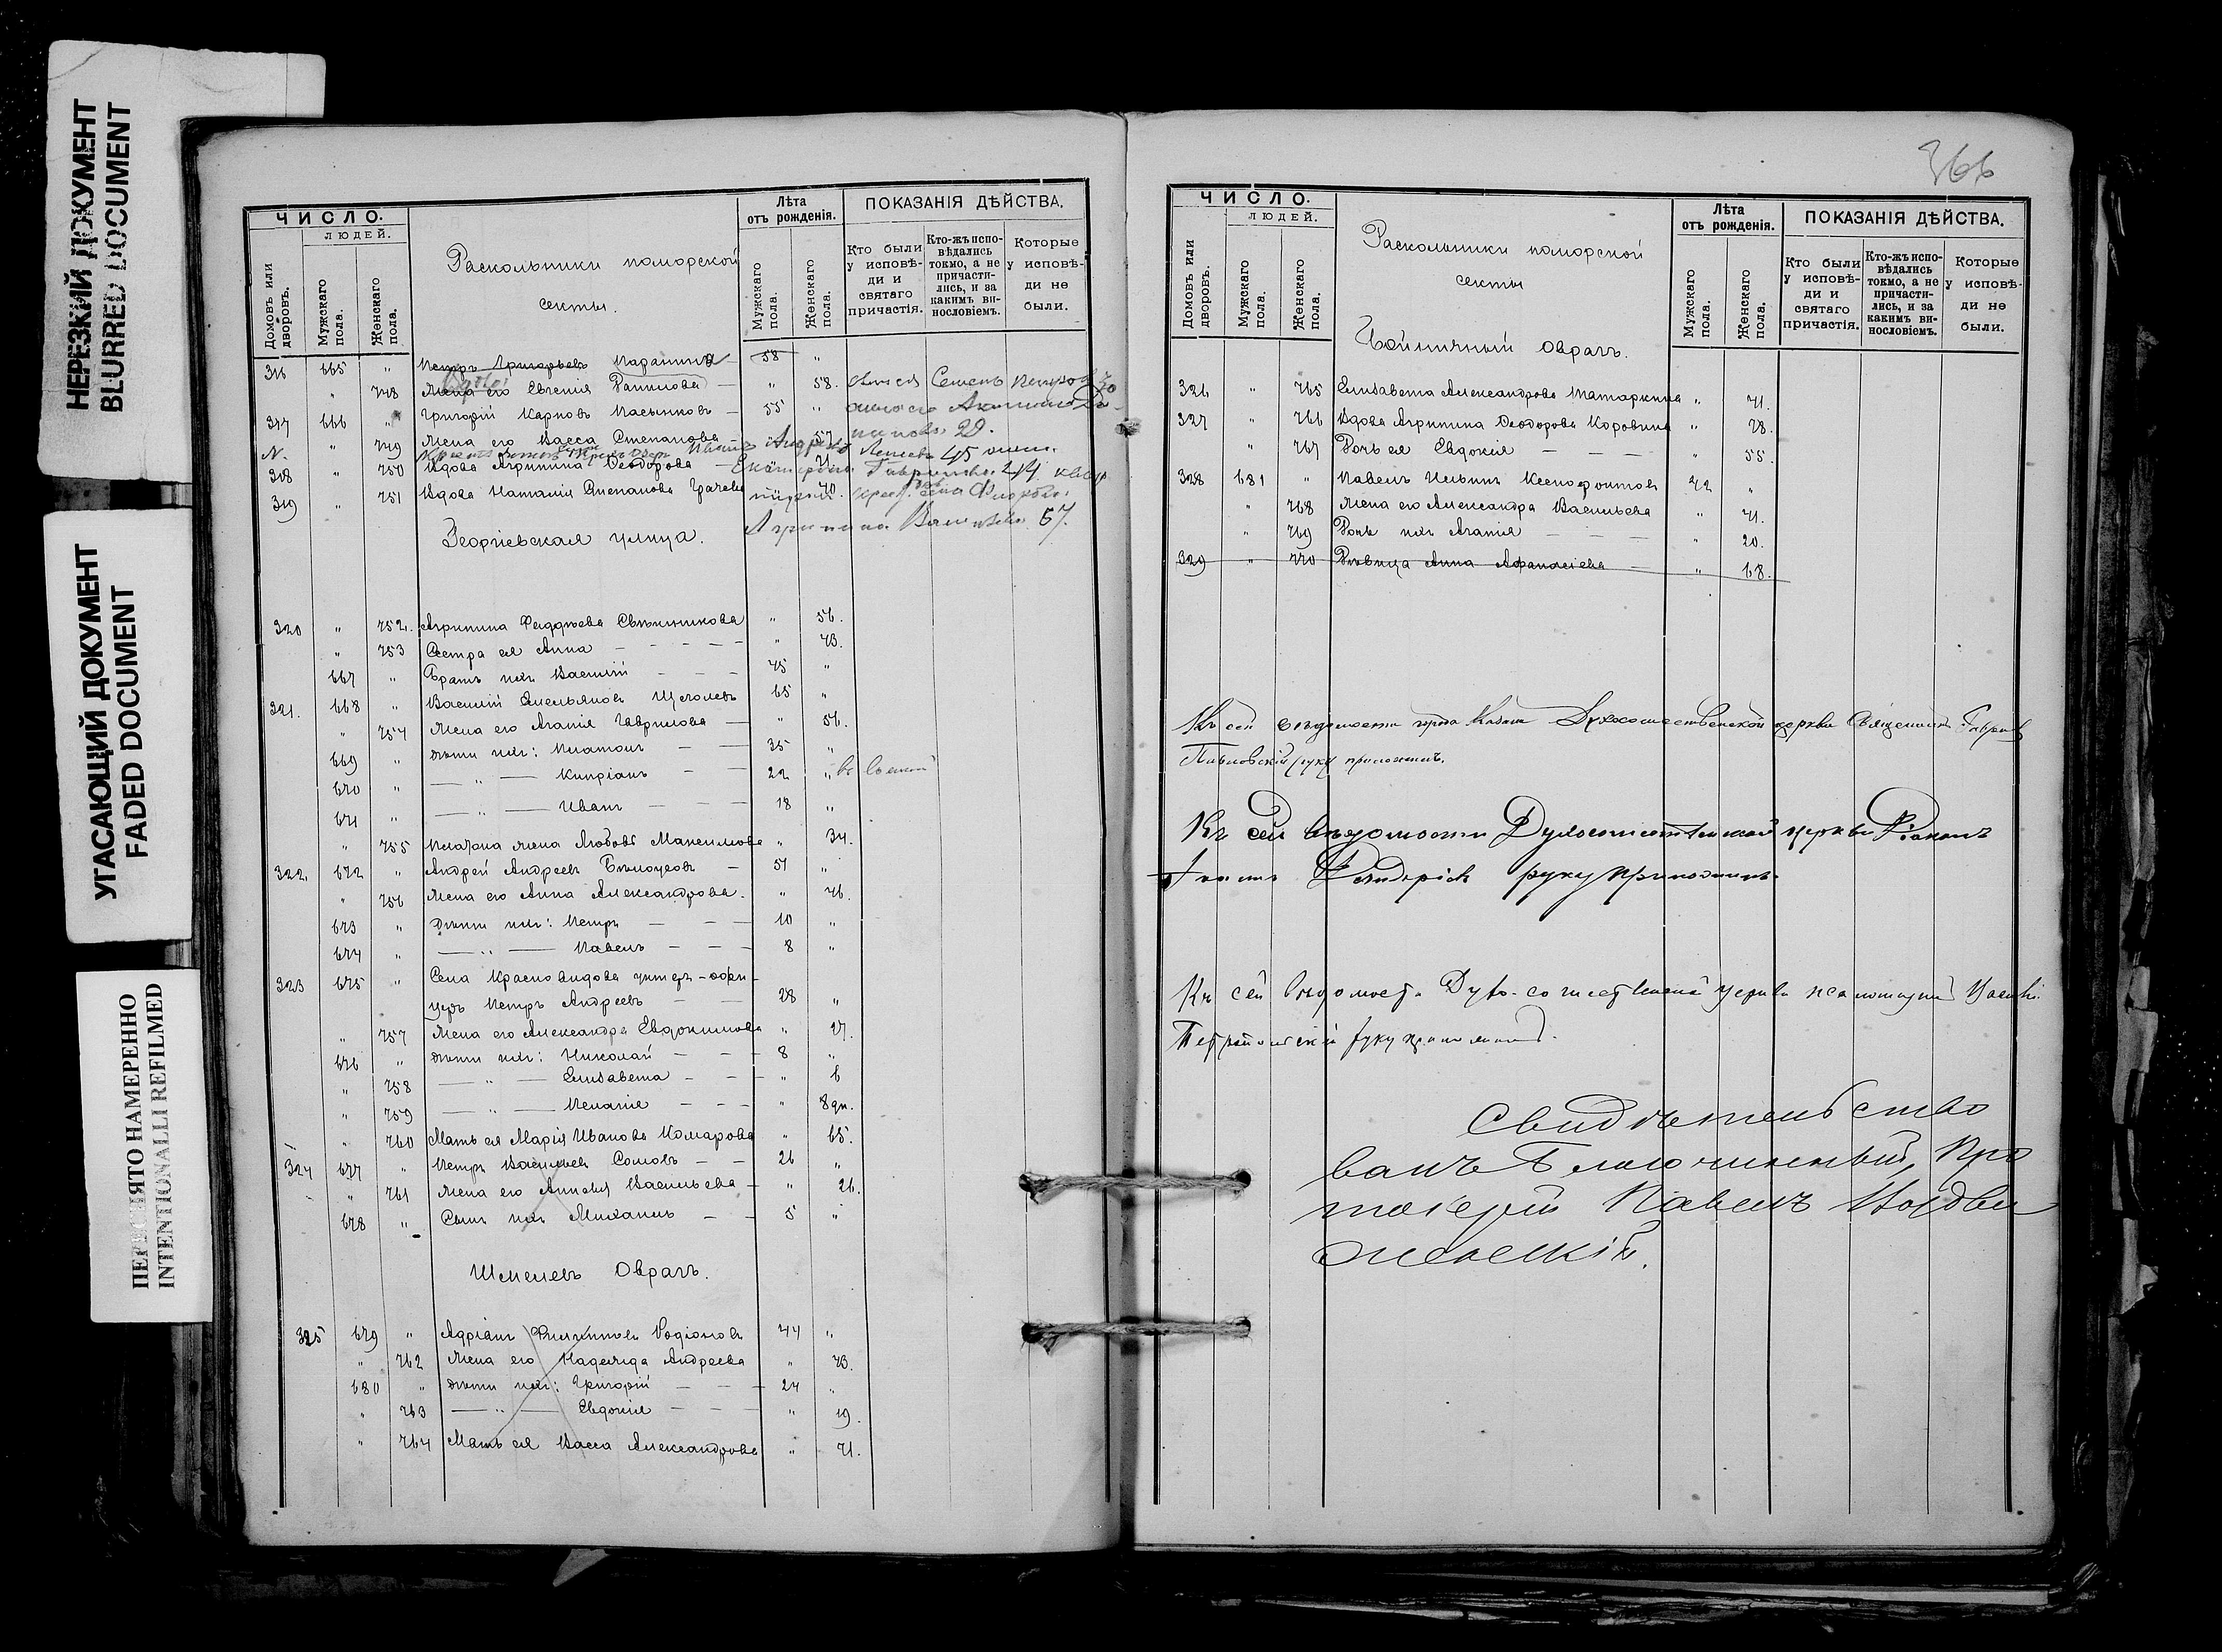 НЕРЕЗКИЙ ДОКУМЕНТ
BLURRED DOCUMENT
УГАСАЮЩИЙ ДОКУМЕНТ
FADED DOCUMENT
ПЕРЕСНЯТО НАМЕРЕННО
INTENTIONALLI REFILMED
ЧИСЛО.
ЛЮДЕЙ.
Домовъ или дворовъ.
Мужскаго пола.
Женскаго пола.
Раскольники поморской
секты.
Лѣта отъ рожденія.
Мужскаго пола.
Женскаго пола.
ПОКАЗАНІЯ ДѢЙСТВА.
Кто были у исповѣ-ди и святаго причастія.
Кто-жъ испо-вѣдались токмо, а не причасти-лись, и за какимъ ви-нословіемъ.
Которые у исповѣ-ди не были.
316 665 " Петръ Григорьевъ 58 "
" 748 Жена его Евгенія Данилова — " 58. Семенъ Петровъ 30
317 666 " Григорій Карповъ Масленковъ — 55 "
" 749 Жена его Васса Степанова 57 29.
318 " 750 Вдова Агрипина Ѳеодорова —
319 " 751 Вдова Наталія Степанова Грачева 70.
Агрипина 57.
Георгіевская улица.
320 " 752. Агрипина Ѳаддѣева Свѣшникова " 56.
" 753 Сестра ея Анна — " 43.
667 " Братъ ихъ Василій 45 "
321. 668 " Василій Емельяновъ Щеголевъ 65 "
" 754 Жена его Агапія Гаврилова — " 56.
669 " дѣти ихъ: Платонъ — 35 "
670 " — " — Кипріанъ — 22 "
671 " — " — Иванъ — 18 "
" 755 Платона жена Любовь Максимова " 34.
322. 672 " Андрей Андреевъ Бѣлоусовъ — 51 "
" 756 Жена его Анна Александрова. " 46.
673 " Дѣти ихъ: Петръ — 10 "
674 " — " — Павелъ — 8 "
323 675 " Села Красновидова унтеръ-офи-
церъ Петръ Андреевъ — 28 "
" 757 Жена его Александра Евдокимова " 27.
676 " дѣти ихъ: Николай — 8 "
" 758 — " — Елисавета — " 6
" 759 — " — Пелагія — " 8 дн.
" 760 Мать ея Марія Иванова Комарова " 65.
324 677 " Петръ Васильевъ Сомовъ — 26 "
" 761 Жена его Васильева — " 26.
678 " Сынъ ихъ Михаилъ — 5 "
Шмелевъ Оврагъ.
325 679 " Адріанъ Филипповъ Родіоновъ 44 "
" 762 Жена его Надежда Андреева " 43.
680 " дѣти ихъ: Григорій — 24 "
" 763 — " — Евдокія — " 19.
" 764 Мать ея Васса Александрова " 71.
366
ЧИСЛО.
ЛЮДЕЙ.
Домовъ или дворовъ.
Мужскаго пола.
Женскаго пола.
Раскольники поморской
секты
Лѣта отъ рожденія.
Мужскаго пола.
Женскаго пола.
ПОКАЗАНІЯ ДѢЙСТВА.
Кто были у исповѣ-ди и святаго причастія.
Кто-жъ испо-вѣдались токмо, а не причасти-лись, и за какимъ ви-нословіемъ.
Которые у исповѣ-ди не были.
Оврагъ.
326 " 765 Елисавета Александрова " 71.
327 " 766 Вдова Агрипина Ѳеодорова Коровина " 78.
" 767 Дочь ея Евдокія — " 55.
328 681 " Павелъ Ильинъ Ксенофонтовъ 72 "
" 768 Жена его Александра Васильева " 71.
" 769 Дочь ихъ Агапія — " 20.
329 " 770 Дѣвица Анна Афанасіева " 68.
Къ сей вѣдомости города Казани Духосошественской церкви Священникъ
руку приложилъ.
Къ сей вѣдомости Духосошественской церкви Діаконъ
руку приложилъ.
Къ сей вѣдомости Духо-сошественской церкви псаломщикъ
руку приложилъ.
Свидѣтельство
валъ Благочинный, Про
тоіерей Павелъ